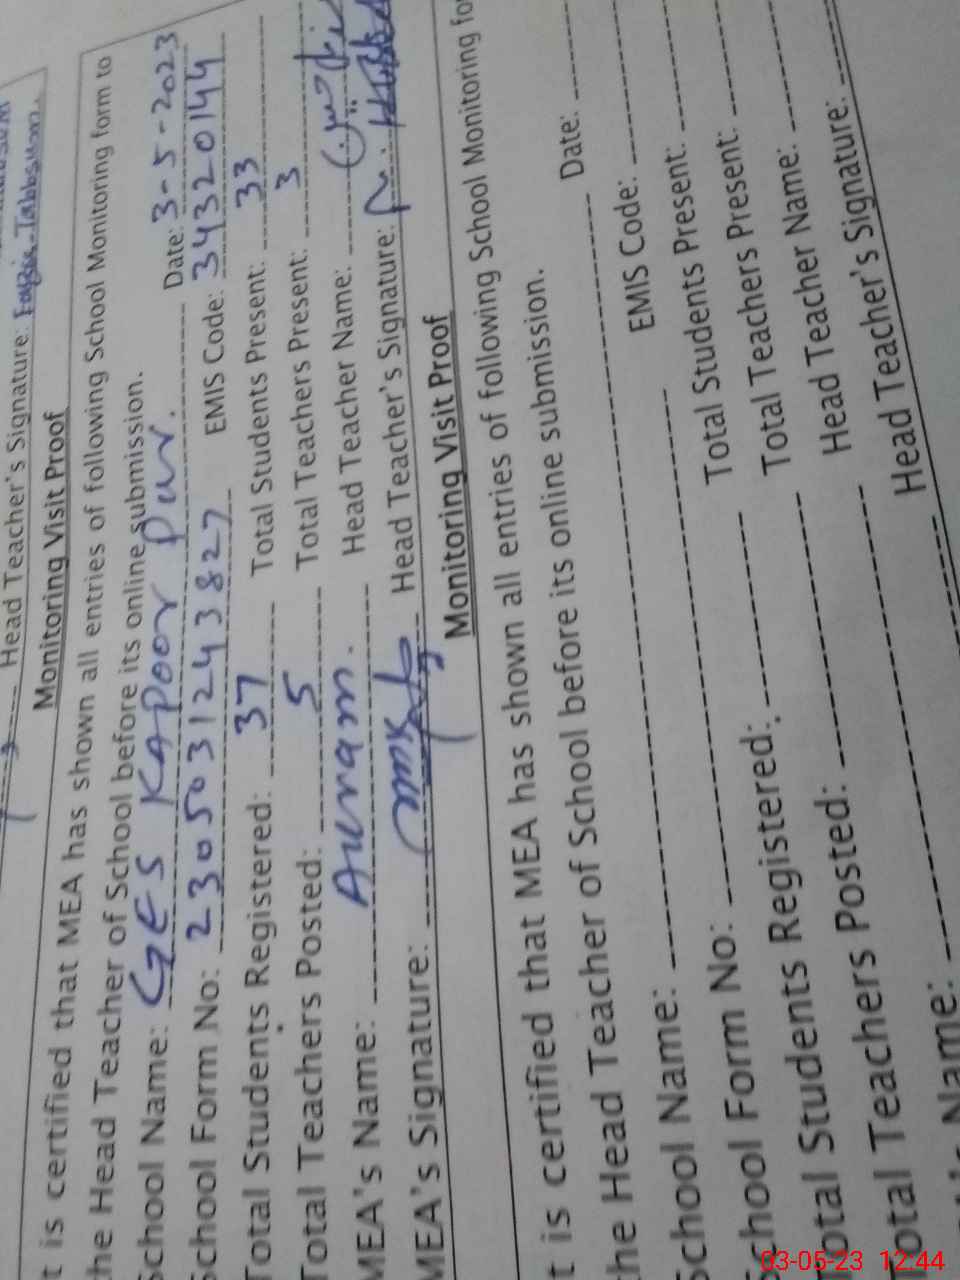 Head Teacher's Signature: Fazia Tabbsum.
Monitoring Visit Proof
t is certified that MEA has shown all entries of following School Monitoring form to
he Head Teacher of School before its online submission.
School Name: GES KAPOOR PUR. Date: 3-5-2023
School Form No: 230503124 3827 EMIS Code: 34320144
Total Students Registered: 37 Total Students Present: 33
Total Teachers Posted: 5 Total Teachers Present: 3
MEA's Name: Auram. Head Teacher Name:
MEA's Signature: Head Teacher's Signature:
Monitoring Visit Proof
t is certified that MEA has shown all entries of following School Monitoring fo
he Head Teacher of School before its online submission.
School Name: Date:
School Form No: EMIS Code:
Total Students Registered: Total Students Present:
Total Teachers Posted: Total Teachers Present:
Name: Head Teacher Name:
Head Teacher's Signature:
03-05-23 12:44